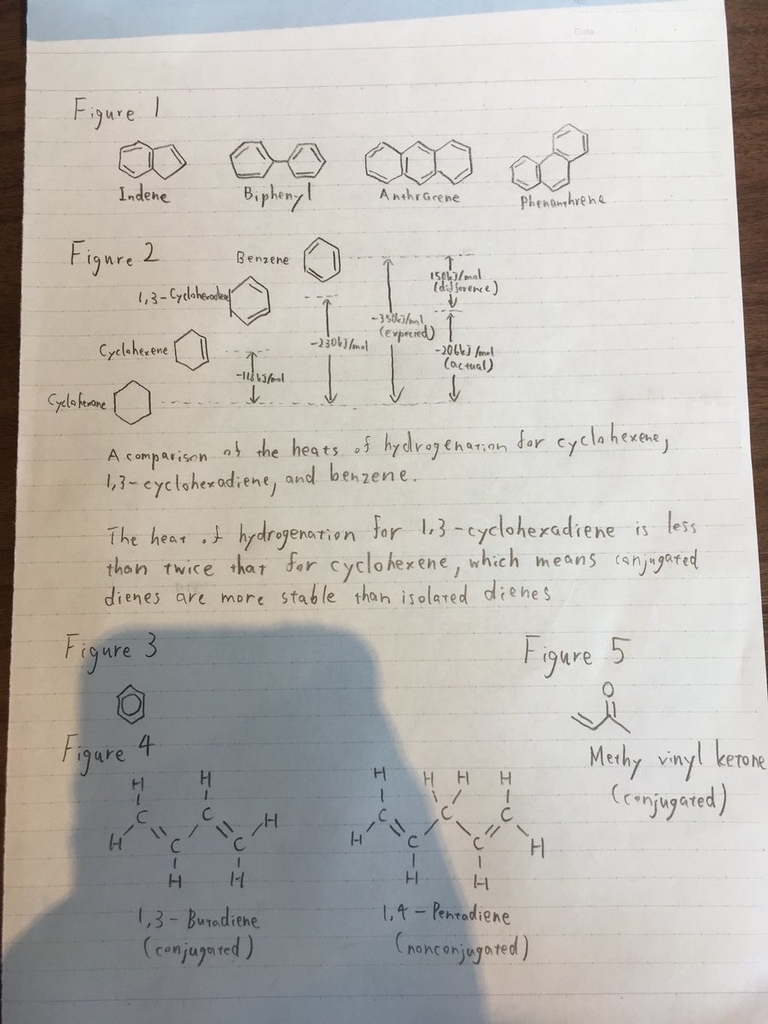 Date
Figure 1
Indene
Biphenyl
Anthracene
Phenanthrene
Figure 2
Benzene
150kJ/mol
(difference)
1,3-Cyclohexadiene
-356kJ/mol
(expected)
-230kJ/mol
Cyclohexene
-206kJ/mol
(actual)
-118kJ/mol
Cyclohexane
A comparison of the heats of hydrogenation for cyclohexene,
1,3-cyclohexadiene, and benzene.
The heat of hydrogenation for 1,3-cyclohexadiene is less
than twice that for cyclohexene, which means conjugated
dienes are more stable than isolated dienes
Figure 3
Figure 5
O
Figure 4
Methy vinyl ketone
(conjugated)
H H H H H H
C C C C
H C C H H C C H
H H H H
1,3-Butadiene
(conjugated)
1,4-Pentadiene
(nonconjugated)